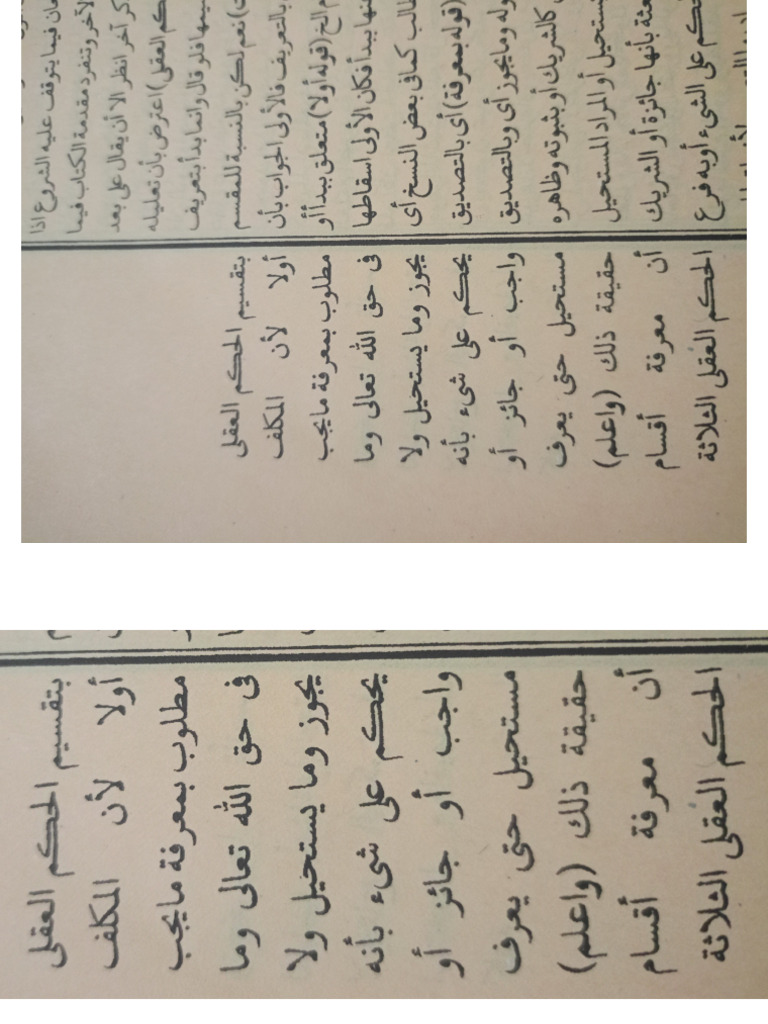 فيما يتوقف عليه الشروع اذا
الآخر وتنفرد مقدمة الكتاب فيما
آخر انظر الا أن يقال على بعد
العقلى) اعترض بأن تعليله
فلو قال وانما بدأ بتعريف
نعم لكن بالنسبة للمقسم
بالتعريف فالأولى الجواب بأن
الخ (قوله أولا) متعلق بيبدأ أو
يبدأ فكان الأولى اسقاطها
كما فى بعض النسخ أى
(قوله بمعرفة) أى بالتصديق
وما يجوز أى وبالتصديق
كالشريك أو بثبوته وظاهره
أو المراد المستحيل
بأنها جائزة أو الشريك
حكم على الشىء أو به فرع
بتقسيم الحكم العقلى
أولا لأن المكلف
مطلوب بمعرفة ما يجب
فى حق الله تعالى وما
يجوز وما يستحيل ولا
يحكم على شىء بأنه
واجب أو جائز أو
مستحيل حتى يعرف
حقيقة ذلك (واعلم)
أن معرفة أقسام
الحكم العقلى الثلاثة
بتقسيم الحكم العقلى
أولا لأن المكلف
مطلوب بمعرفة ما يجب
فى حق الله تعالى وما
يجوز وما يستحيل ولا
يحكم على شىء بأنه
واجب أو جائز أو
مستحيل حتى يعرف
حقيقة ذلك (واعلم)
أن معرفة أقسام
الحكم العقلى الثلاثة